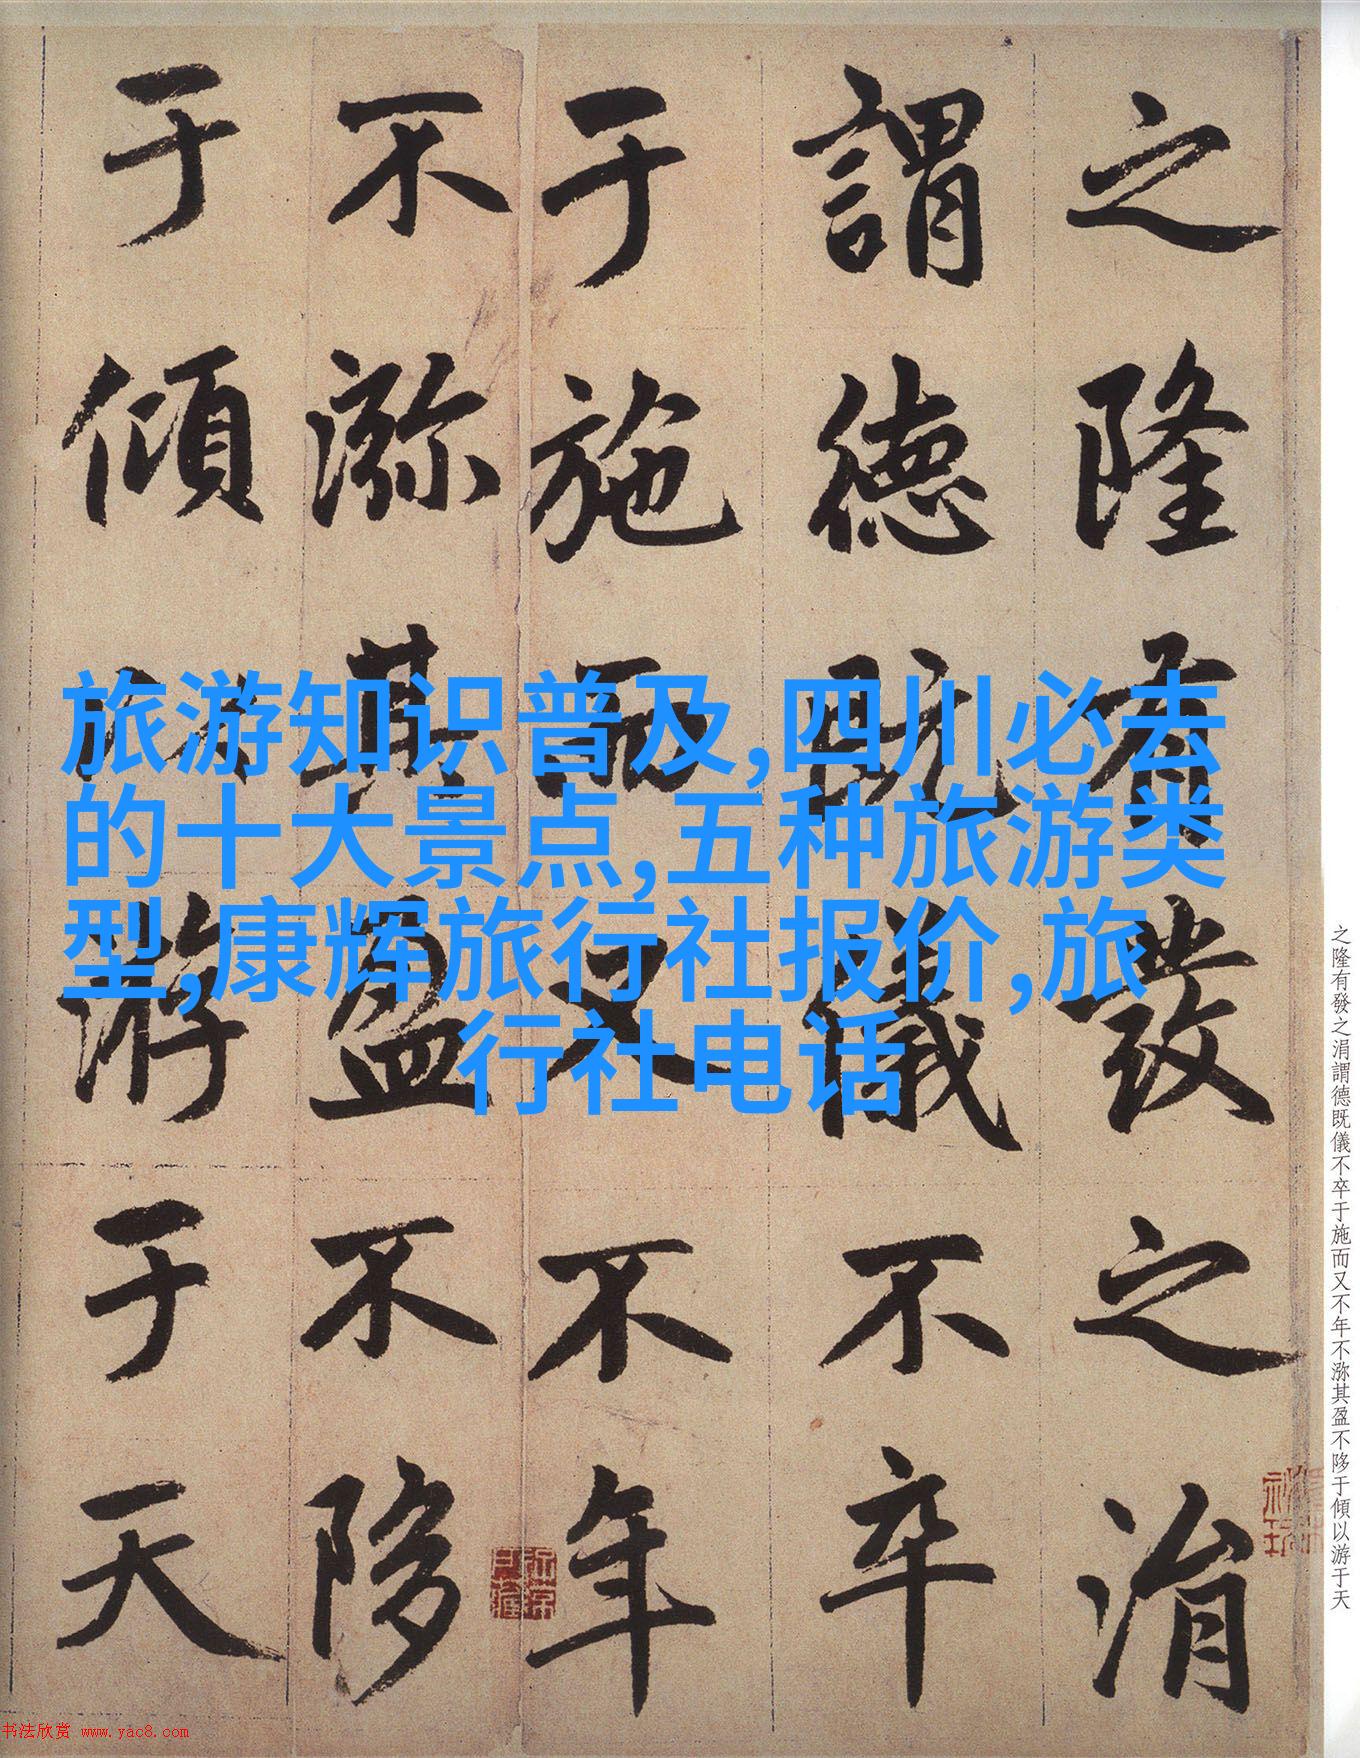 之隆有發之涓
謂德既儀不卒
于施而又不年
不㳽其盈不陊
于傾以游于天
旅游知识普及,四川必去
的十大景点,五种旅游类
型,康辉旅行社报价,旅
行社电话
之隆有發之涓謂德既儀不卒于施而又不年不㳽其盈不陊于傾以游于天
书法欣赏 www.yac8.com